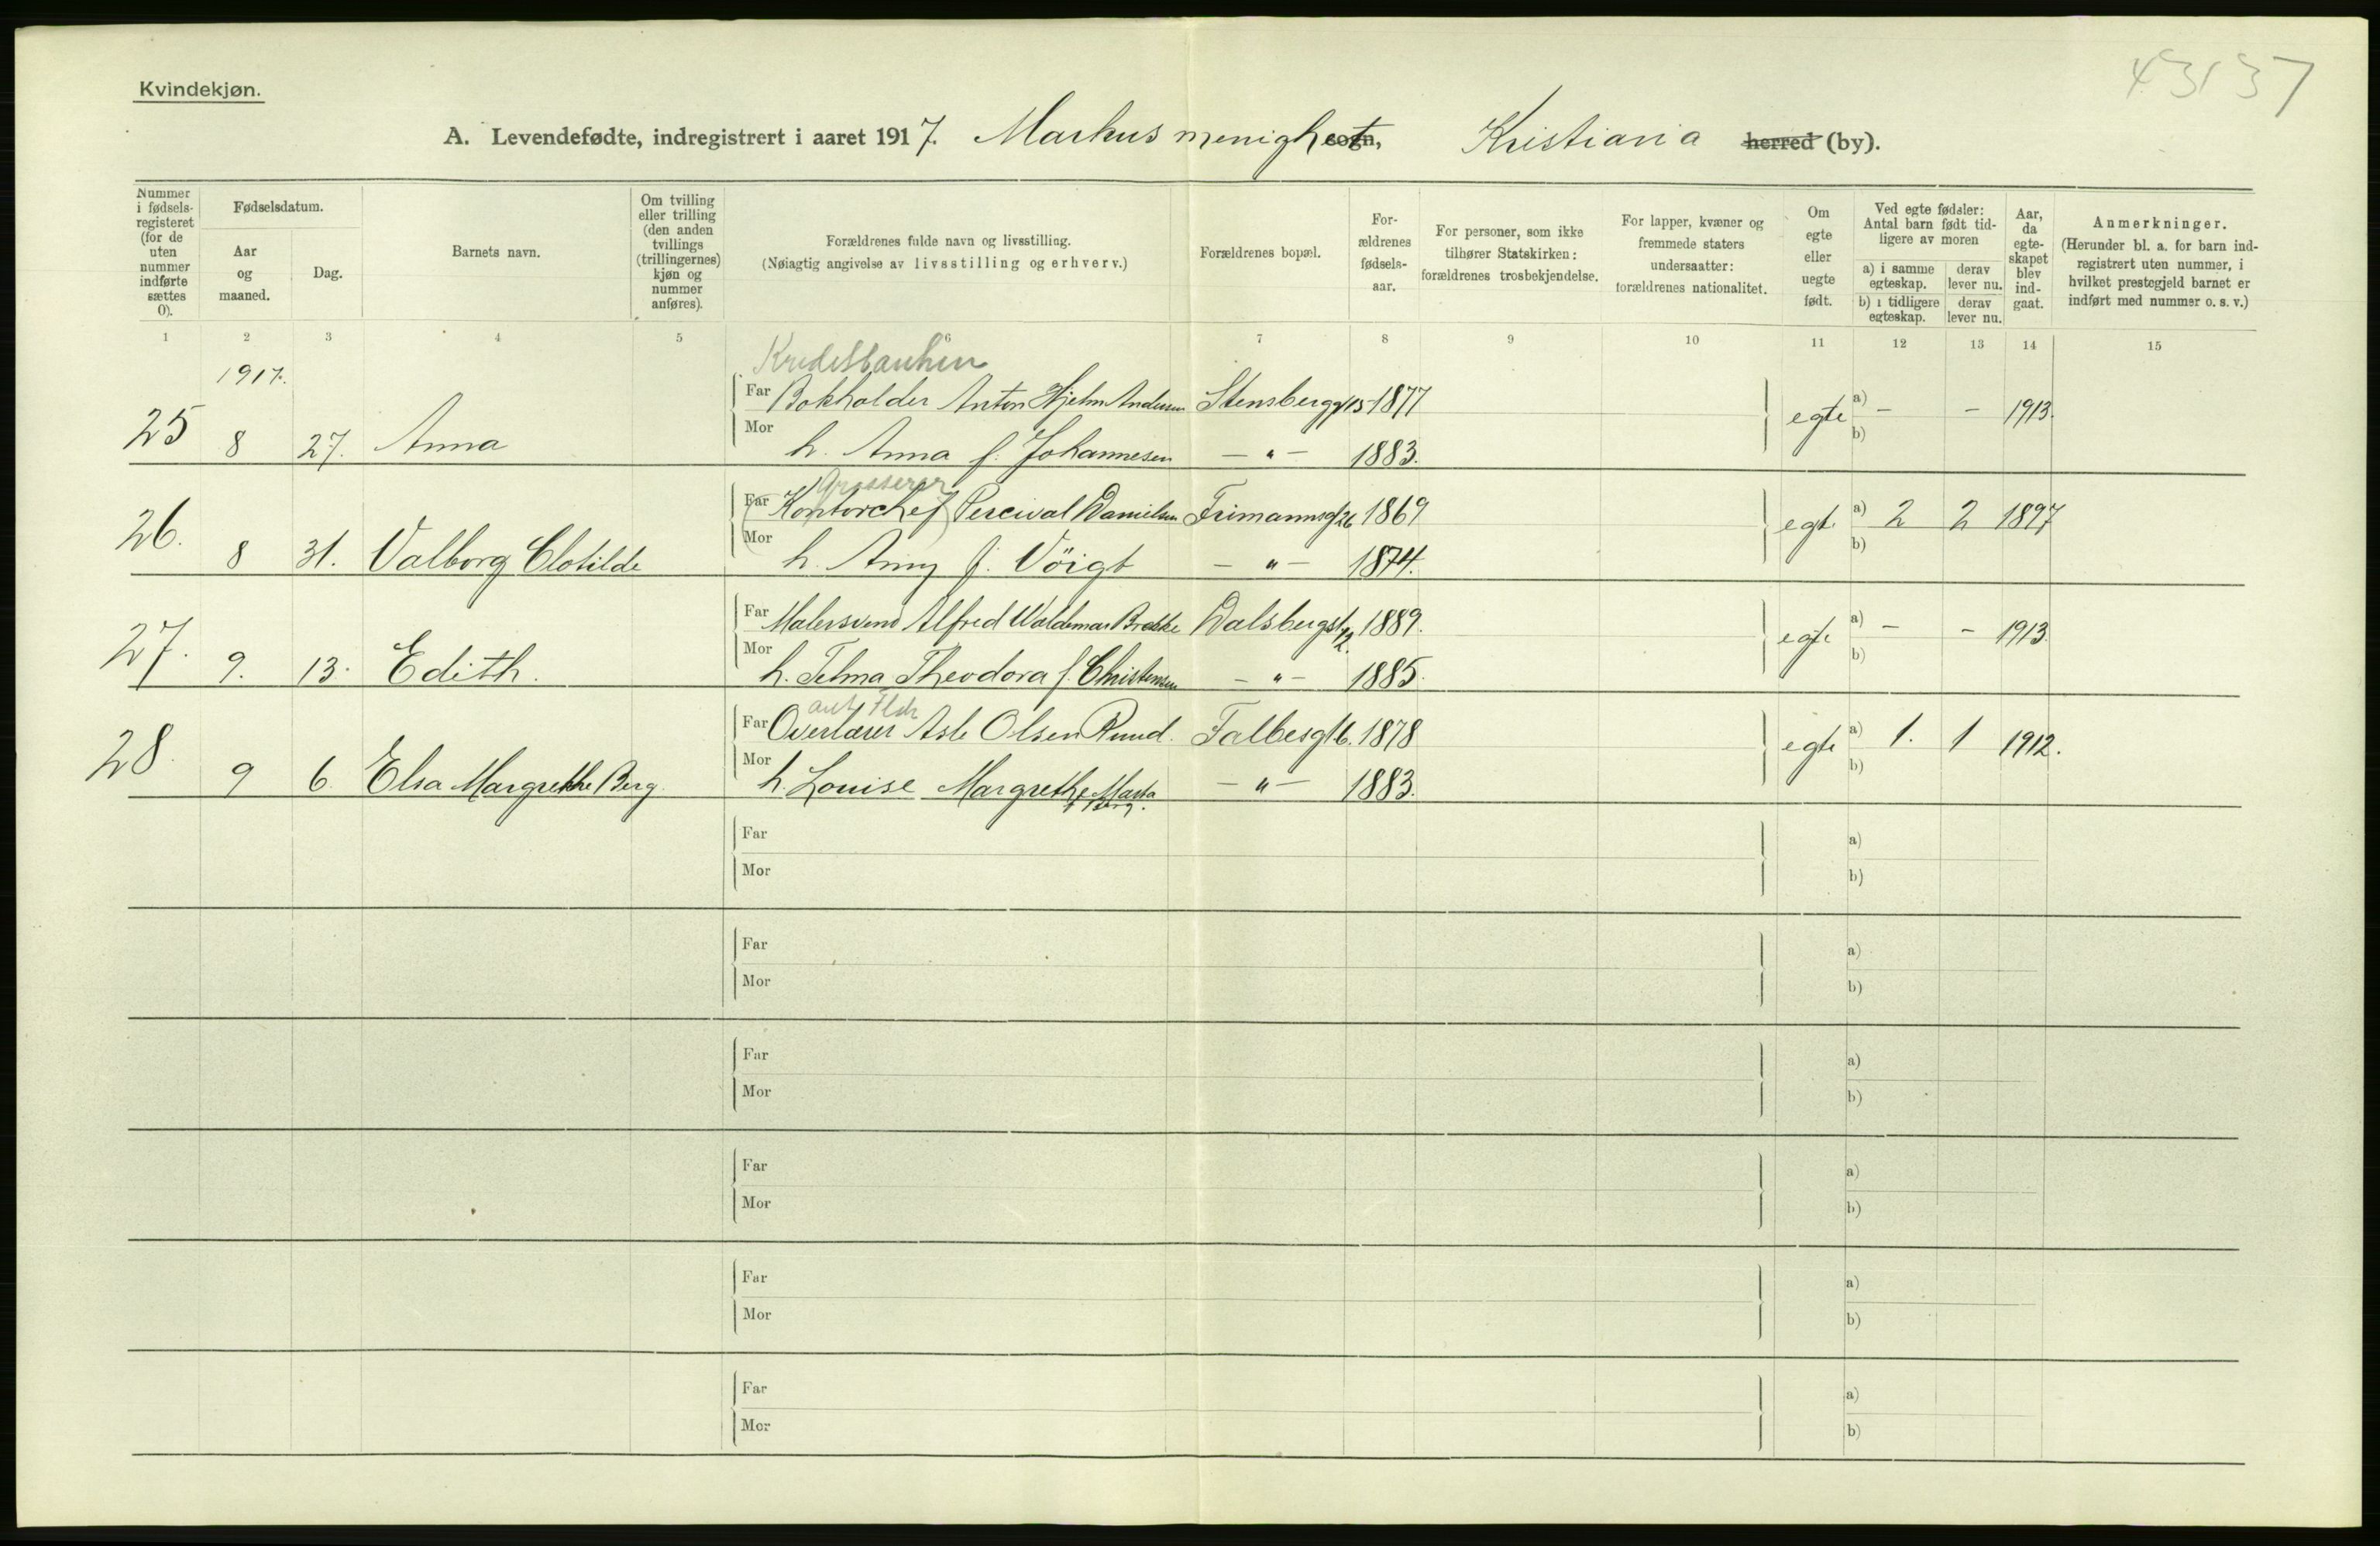 43137
Kvindekjøn.
A. Levendefødte, indregistrert i aaret 1917. Markus menighet sogn, Kristiania herred (by).
Nummer i fødsels-registeret (for de uten nummer indførte sættes 0).
Fødselsdatum.
Aar og maaned.
Dag.
Barnets navn.
Om tvilling eller trilling (den anden tvillings (trillingernes) kjøn og nummer anføres).
Forældrenes fulde navn og livsstilling.
(Nøiagtig angivelse av livsstilling og erhverv.)
Forældrenes bopæl.
For-ældrenes fødsels-aar.
For personer, som ikke tilhører Statskirken: forældrenes trosbekjendelse.
For lapper, kvæner og fremmede staters undersaatter: forældrenes nationalitet.
Om egte eller uegte født.
Ved egte fødsler: Antal barn født tid-ligere av moren
a) i samme egteskap.
derav lever nu.
b) i tidligere egteskap.
derav lever nu.
Aar, da egte-skapet blev ind-gaat.
Anmerkninger.
(Herunder bl. a. for barn ind-registrert uten nummer, i hvilket prestegjeld barnet er indført med nummer o. s. v.)
1 2 3 4 5 6 7 8 9 10 11 12 13 14 15
1917.
Kreditbanken
Far Bokholder Anton Hjelm Andersen Stensbergg 15 1877
25 8 27. Anna egte a) - - 1913.
Mor h. Anna f. Johannesen - " - 1883. b)
Grosserer
Far (Kontorchef) Percival Danielsen Frimannsgt 26 1869
26. 8 31. Valborg Clotilde egte a) 2 2 1897
Mor h. Amy f. Vöigt - " - 1874. b)
Far Malersvend Alfred Waldemar Brekke Dalsbergst 12. 1889.
27. 9. 13. Edith. egte a) - - 1913.
Mor h. Telma Theodora f. Christensen - " - 1885. b)
Far Overlærer Asle Olsen Ruud. Falbesgt 6. 1878
28. 9 6. Elsa Margrethe Berg. egte a) 1. 1 1912.
Mor h. Louise Margrethe Marta f. Berg. - " - 1883. b)
Far a)
Mor b)
Far a)
Mor b)
Far a)
Mor b)
Far a)
Mor b)
Far a)
Mor b)
Far a)
Mor b)